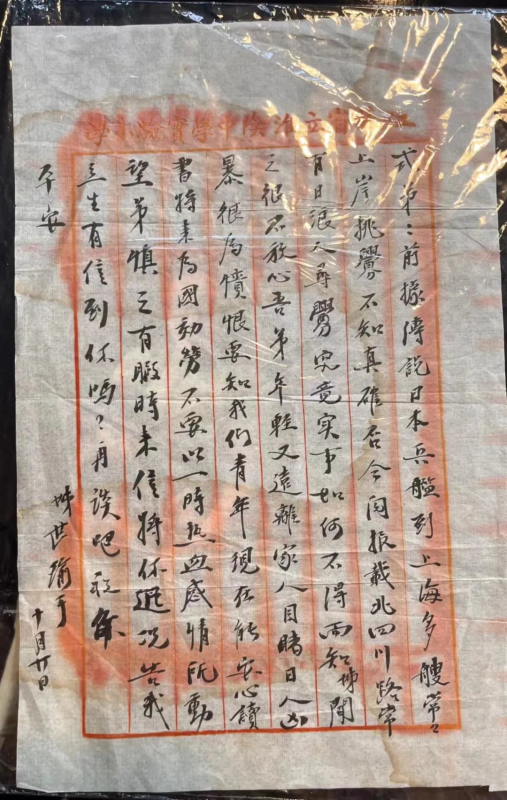 弍弟：前據傳說日本兵艦到上海多艘常々
上岸挑釁不知真確否今閱報載北四川路常
有日浪人尋釁究竟實事如何不得而知姊聞
之很不放心吾弟年輕又遠離家人目睹日人凶
暴很為憤恨要知我們青年現在能安心讀
書將來為國効勞不要以一時热血感情所動
望弟慎之有暇時來信將你近況告我
生有信到你嗎？再談吧祝你
平安
姊世瑜手
十月廿日